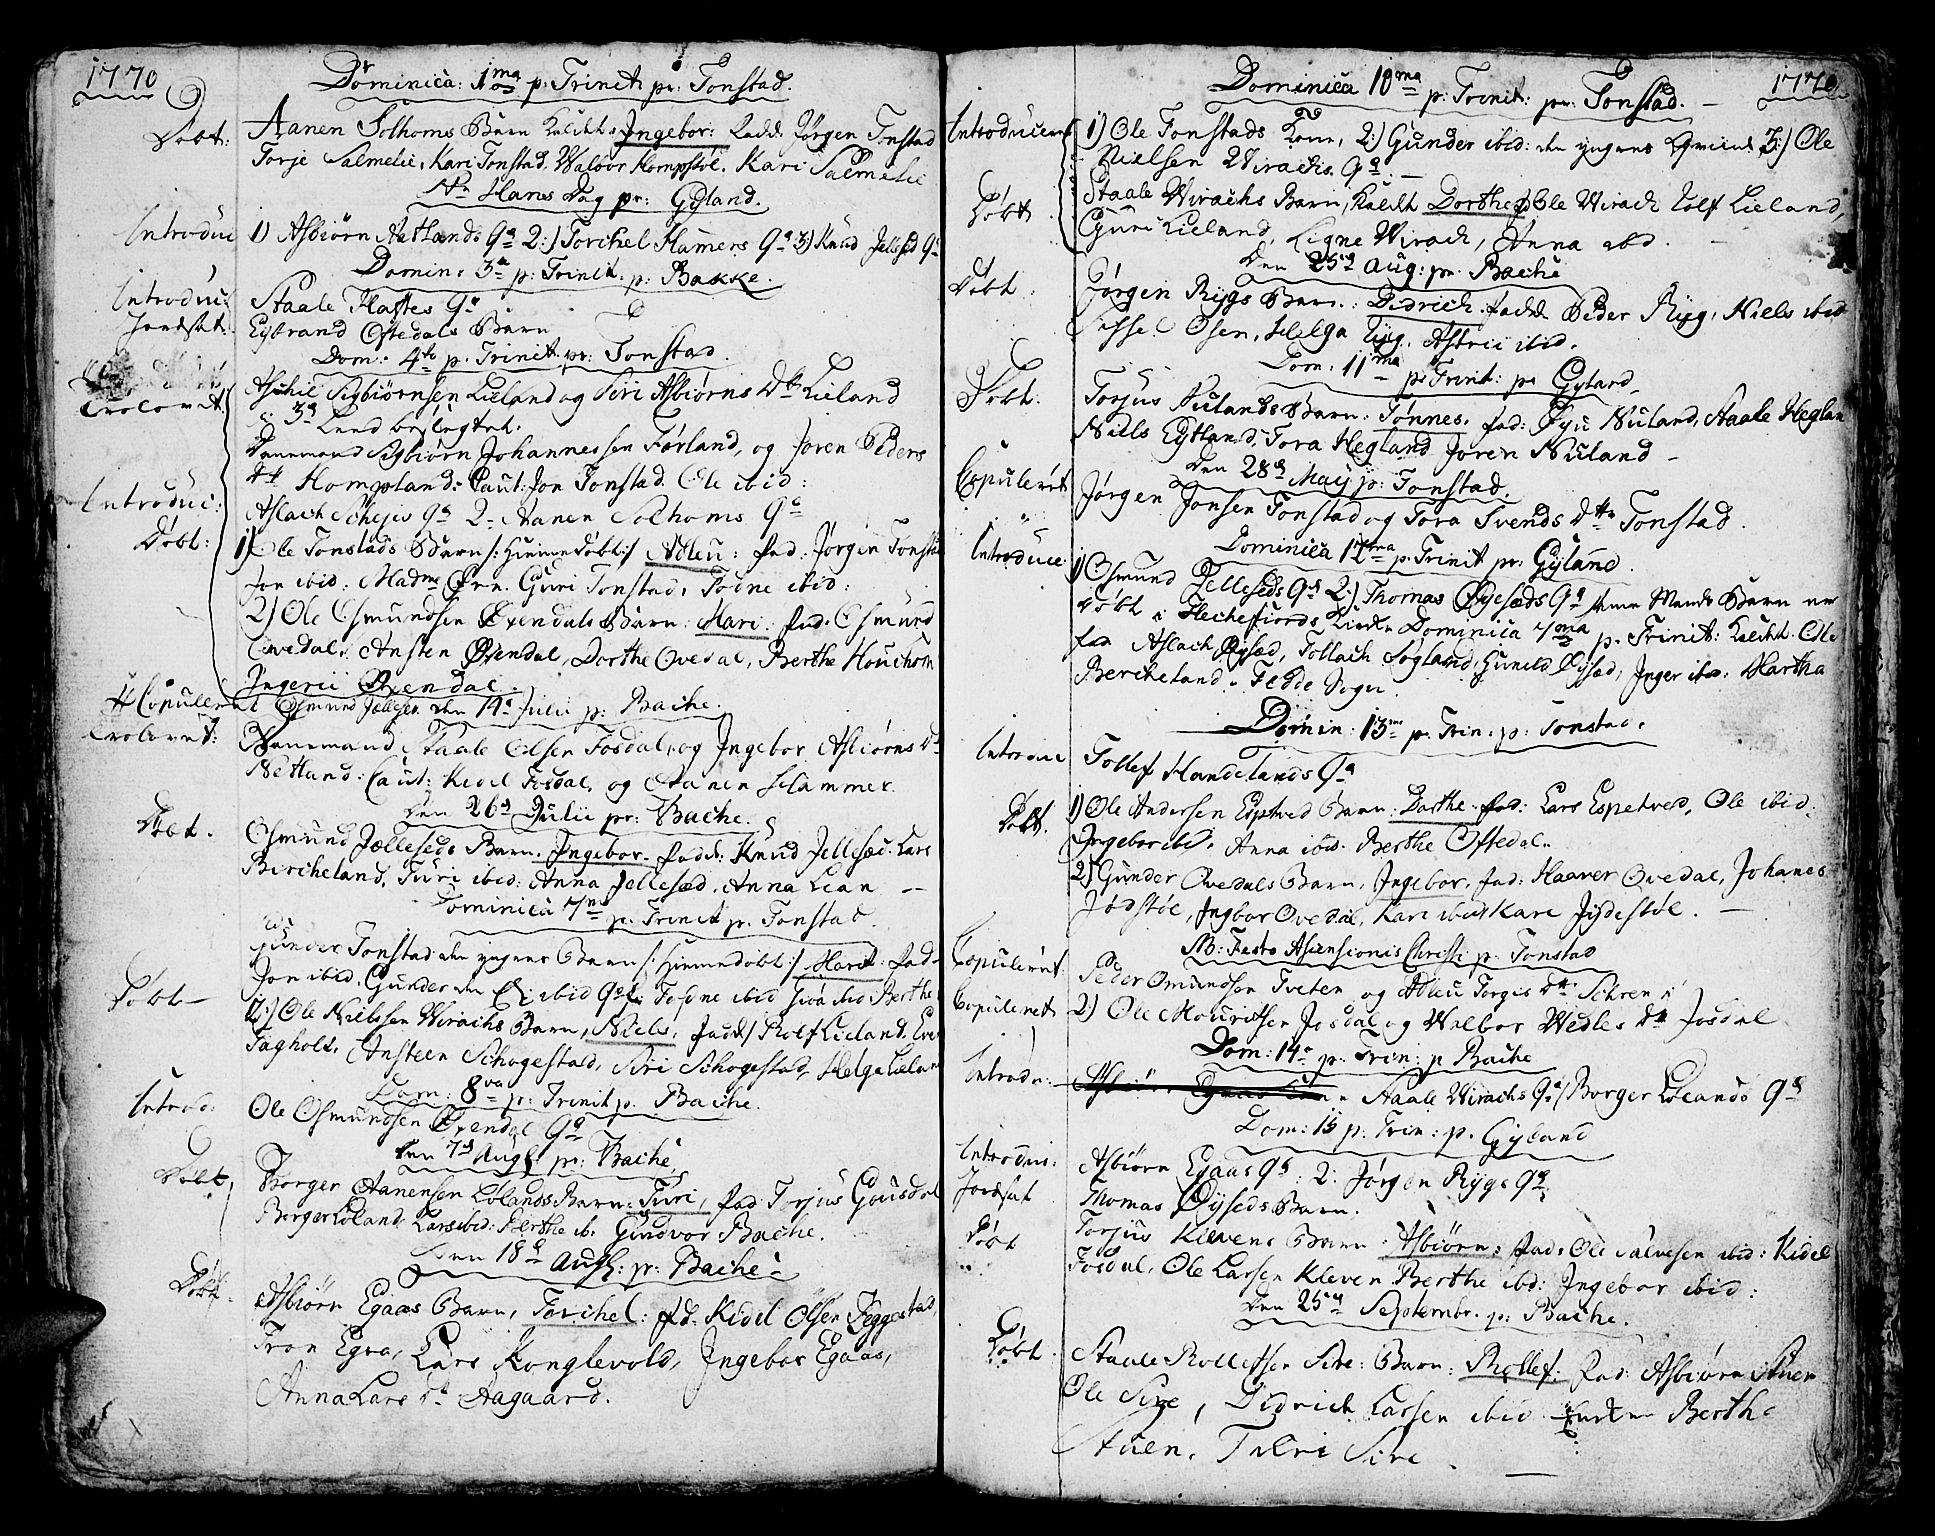 1770
Dominica: 1ma p: Trinit pr: Tonstad.
Døbt: Aanen Solhoms Barn kaldt Ingebor: Fadd: Jørgen Tonstad
Torje Salmelie, Kari Tonstad, Walbor Hompstøl, Kari Salmelie
St. Hans Dag pr: Gyland.
Introduc 1) Asbiørn Aatlands Qa 2:) Torchel Hamers Qa 3) Knud Jellesed Qa
Domin: 3tia p: Trinit: p: Bakke.
Introduc: Staale Haftes Qa
Jordfæst: Eybrand Oftedals Barn
Dom: 4ta p. Trinit: pr: Tonstad.
Trolovet: Aschil Sigbiørnsen Lieland og Siri Asbiørns Dtr Lieland
i 3d Leed beslegtet.
Dannemand Sigbiørn Johannessen Førland, og Joren Peders
Dtr Hompland: Caut: Jon Tonstad. Ole ibid:
Introduc: Aslach Schejis Qa 2. Aanen Solhoms Qa
Døbt: 1) Ole Tonstads Barn /: hiemedøbt:/ Adleu: Fad: Jørgen Tonstad
Jon ibid: Madme Ørn. Guri Tonstad, Todne ibid:
2) Ole Osmundsen Øxendals Barn: Mari: Fad: Osmund
Ovedal, Ansten Øxendal, Dorthe Ovedal, Berthe Houchom
Ingerii Øxendal.
Copuleret Osmund Jællesen den 14de Julii p: Bache.
Trolovet: Dannemand Staale Olsen Fosdal, og Ingebor Asbiørns Dtr
Netland: Caut: Kidel Fosdal, og Aanen Hammer
Den 26d Julii pr: Bache.
Døbt. Osmund Jælleseds Barn. Ingebor. Fadd: Knud Jellesæd. Lars
Bircheland, Turi ibid: Anna Jellesæd. Anna Lian --
Dominica 7ma p. Trinit p. Tonstad.
Døbt - Gunder Tonstad den yngres Barn /: hiemedøbt:/ Marit: Fad.
Jon ibid. Gunder den ibid Todne ibid Berthe
2:) Ole Nielssen Wirachs Barn, Niels, Fadd/ Rolf Lieland. Even
Fagholt, Ansteen Schogestad, Siri Schogestad, Helga Lieland
Dom: 8va p: Trinit p. Bache.
Introd: Ole Osmundsen Øxendal Qa
Den 7d Aug pr: Bache
Døbt, Borger Aanensen Lolands Barn: Turi, Fad Torjus Gousdal
Borger Loland Lars ibid: Berthe ib. Gundvor Bache.
Den 18d Aug: p: Bache -
Døbt. Asbiørn Egaas Barn, Torchel: Fd. Kidel Olsen Teggestad,
Tron Egra, Lars Konglevold, Ingebor Egaas,
Anna Lars Dtr Aagaard.
1770
Dominica 10ma p: Trinit: pr: Tonstad. -
Introduceret 1) Ole Tonstads Kone, 2:) Gunder ibid: den yngres Qvinde 3:) Ole
Nielsen Wirachs Qa -
Døbt Staale Wirachs Barn, kaldt Dorthe, Ole Wirach Rolf Lieland,
Guri Lieland, Signe Wirach, Anna ibd. -
Den 25d Aug: pr. Bache
Døbt: Jørgen Rygs Barn: Didrich. Fadd. Peder Ryg, Niels ibid
Sissel Osen, Helga Ryg, Astrii ibid.
Dom: 11ma p: Trinit: pr Gyland
Døbt: Torjus Nulands Barn: Tønnes. Fad: Nuland, Staale Heglan
Niels Eytland, Tora Hegland Joren Nuland -
Den 28d May p: Tonstad.
Copuleret Jørgen Jonsen Tonstad og Tora Svends Dttr Tonstad.
Dominica 12ma p: Trinit pr: Gyland.
Introduce: 1) Osmund Jelleseds Qa 2:) Thomas Øyesæds Qa denne Mands Barn er
døbt i Flechefiords Kirke Dominica 7ma p. Trinit: kaldt. Ole
Fad Aslach Øysæd, Tollach Sogland, Gunild Øysæd, Inger ibid: Martha
Bercheland. Fedde Sogn.
Domin: 13me p: Trin: p: Tonstad.
Introduc Tollef Handelands Qa
Døbt. 1) Ole Andersen Espetved Barn: Dorthe. Fad: Lars Espetved, Ole ibid:
Ingebor ibd. Anna ibid. Berthe Oftedal.
2) Gunder Ovedals Barn, Ingebor, Fad: Haaver Ovedal, Johanes
Jødstøl, Ingbor Ovedal, Kari ibid Kari Jødestøl. -
NB: Festo Ascensionis Christi p: Tonstad
Copuleret: Peder Omundsen Tveten og Adleu Torgis Dtr Sehren
Copuleret 2) Ole Mouritsen Josdal og Walbor Wedles Dtr Josdal
Dom: 14de p. Trin: p Bache
Introdu: Staale Wirachs Qa / Borger Lolands Qa
Dom: 15 p: Trin: p. Gyland
Introduc: Asbiørn Egaas Qa: 2: Jørgen Rygs Qa
Jordfæst Thomas Øyseds Barn.
Døbt Torjus Klevens Barn: Asbiørn: Fad: Ole Salvesen ibid: Kidel
Fosdal, Ole Larsen Kleven Berthe ibd: Ingebor ibid:
Den 25d Septembr. p: Bache.
Døbt. Staale Rollefsen Sire: Barn: Rollef: Fad: Asbiørn Stuen
Ole Sire, Didrich Larsen ibid Berthe
Stuen, Taleri Sire